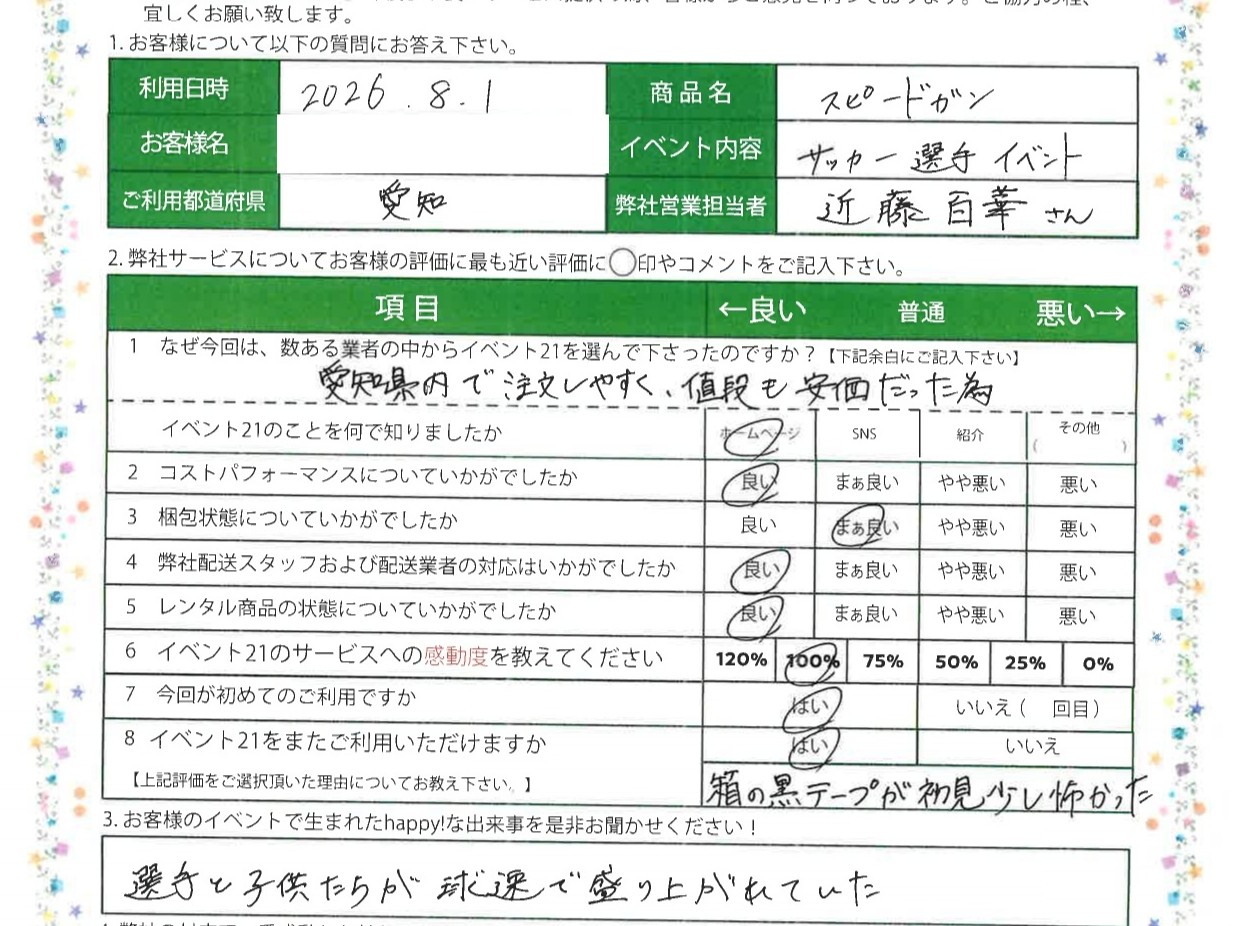 宜しくお願い致します。
1. お客様について以下の質問にお答え下さい。
利用日時 2026.8.1 商品名 スピードガン
お客様名 イベント内容 サッカー選手イベント
ご利用都道府県 愛知 弊社営業担当者 近藤百華さん
2. 弊社サービスについてお客様の評価に最も近い評価に◯印やコメントをご記入下さい。
項目 ←良い 普通 悪い→
1 なぜ今回は、数ある業者の中からイベント21を選んで下さったのですか？【下記余白にご記入下さい】
愛知県内で注文しやすく、値段も安価だった為
イベント21のことを何で知りましたか ホームページ SNS 紹介 その他( )
2 コストパフォーマンスについていかがでしたか 良い まぁ良い やや悪い 悪い
3 梱包状態についていかがでしたか 良い まぁ良い やや悪い 悪い
4 弊社配送スタッフおよび配送業者の対応はいかがでしたか 良い まぁ良い やや悪い 悪い
5 レンタル商品の状態についていかがでしたか 良い まぁ良い やや悪い 悪い
6 イベント21のサービスへの感動度を教えてください 120% 100% 75% 50% 25% 0%
7 今回が初めてのご利用ですか はい いいえ( 回目)
8 イベント21をまたご利用いただけますか はい いいえ
【上記評価をご選択頂いた理由についてお教え下さい。】 箱の黒テープが初見少し怖かった
3. お客様のイベントで生まれたhappy!な出来事を是非お聞かせください！
選手と子供たちが球速で盛り上がれていた